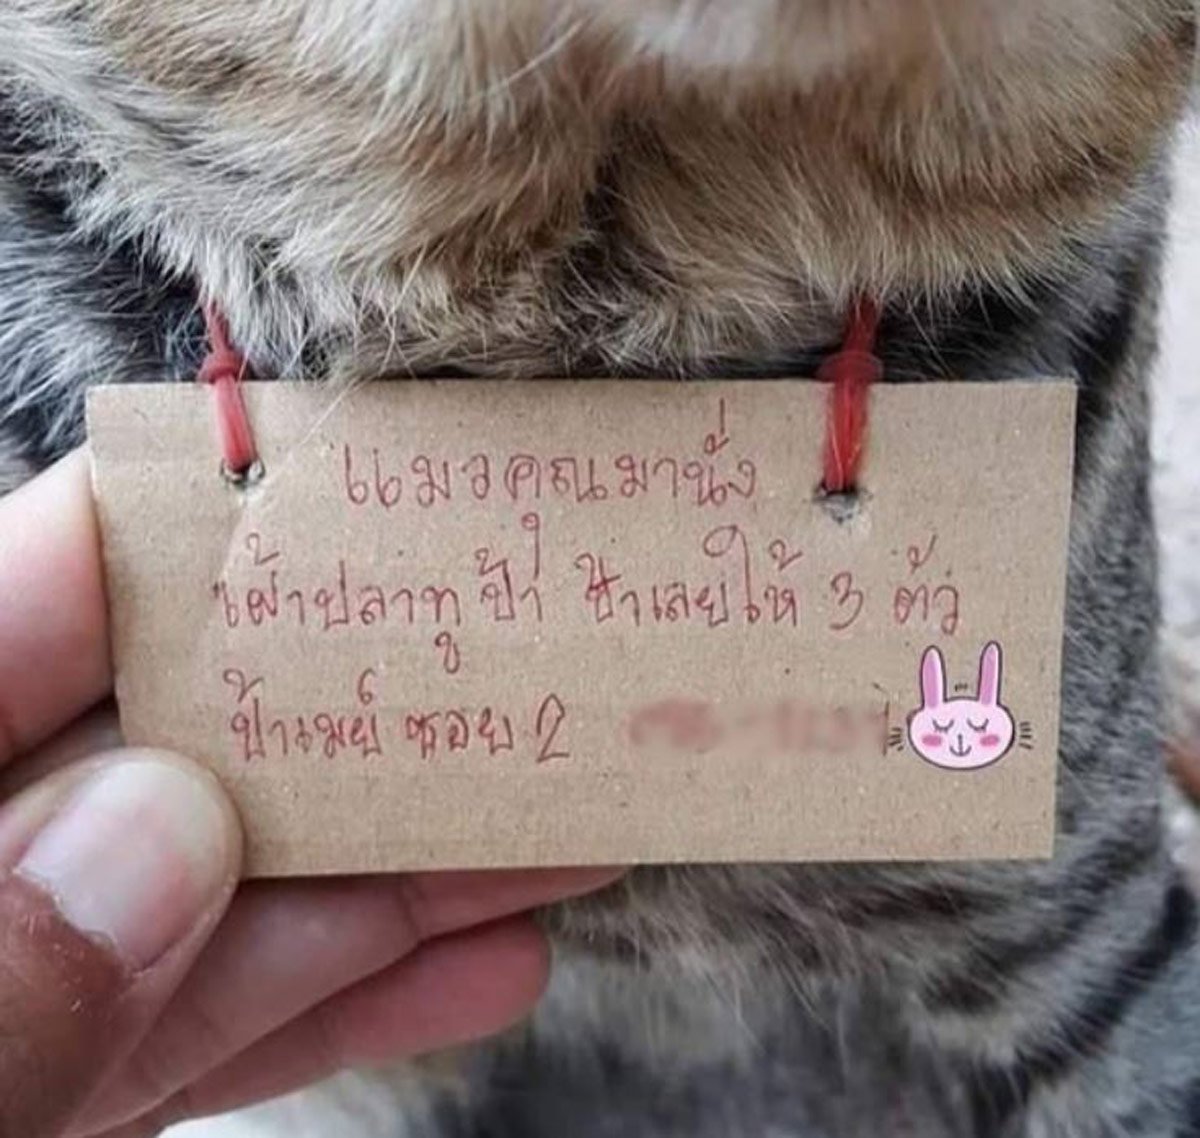 แมวคุณมานั่ง
เฝ้าปลาทู ป้า ป้าเลยให้ 3 ตัว
ป้าเมย์ ซอย 2